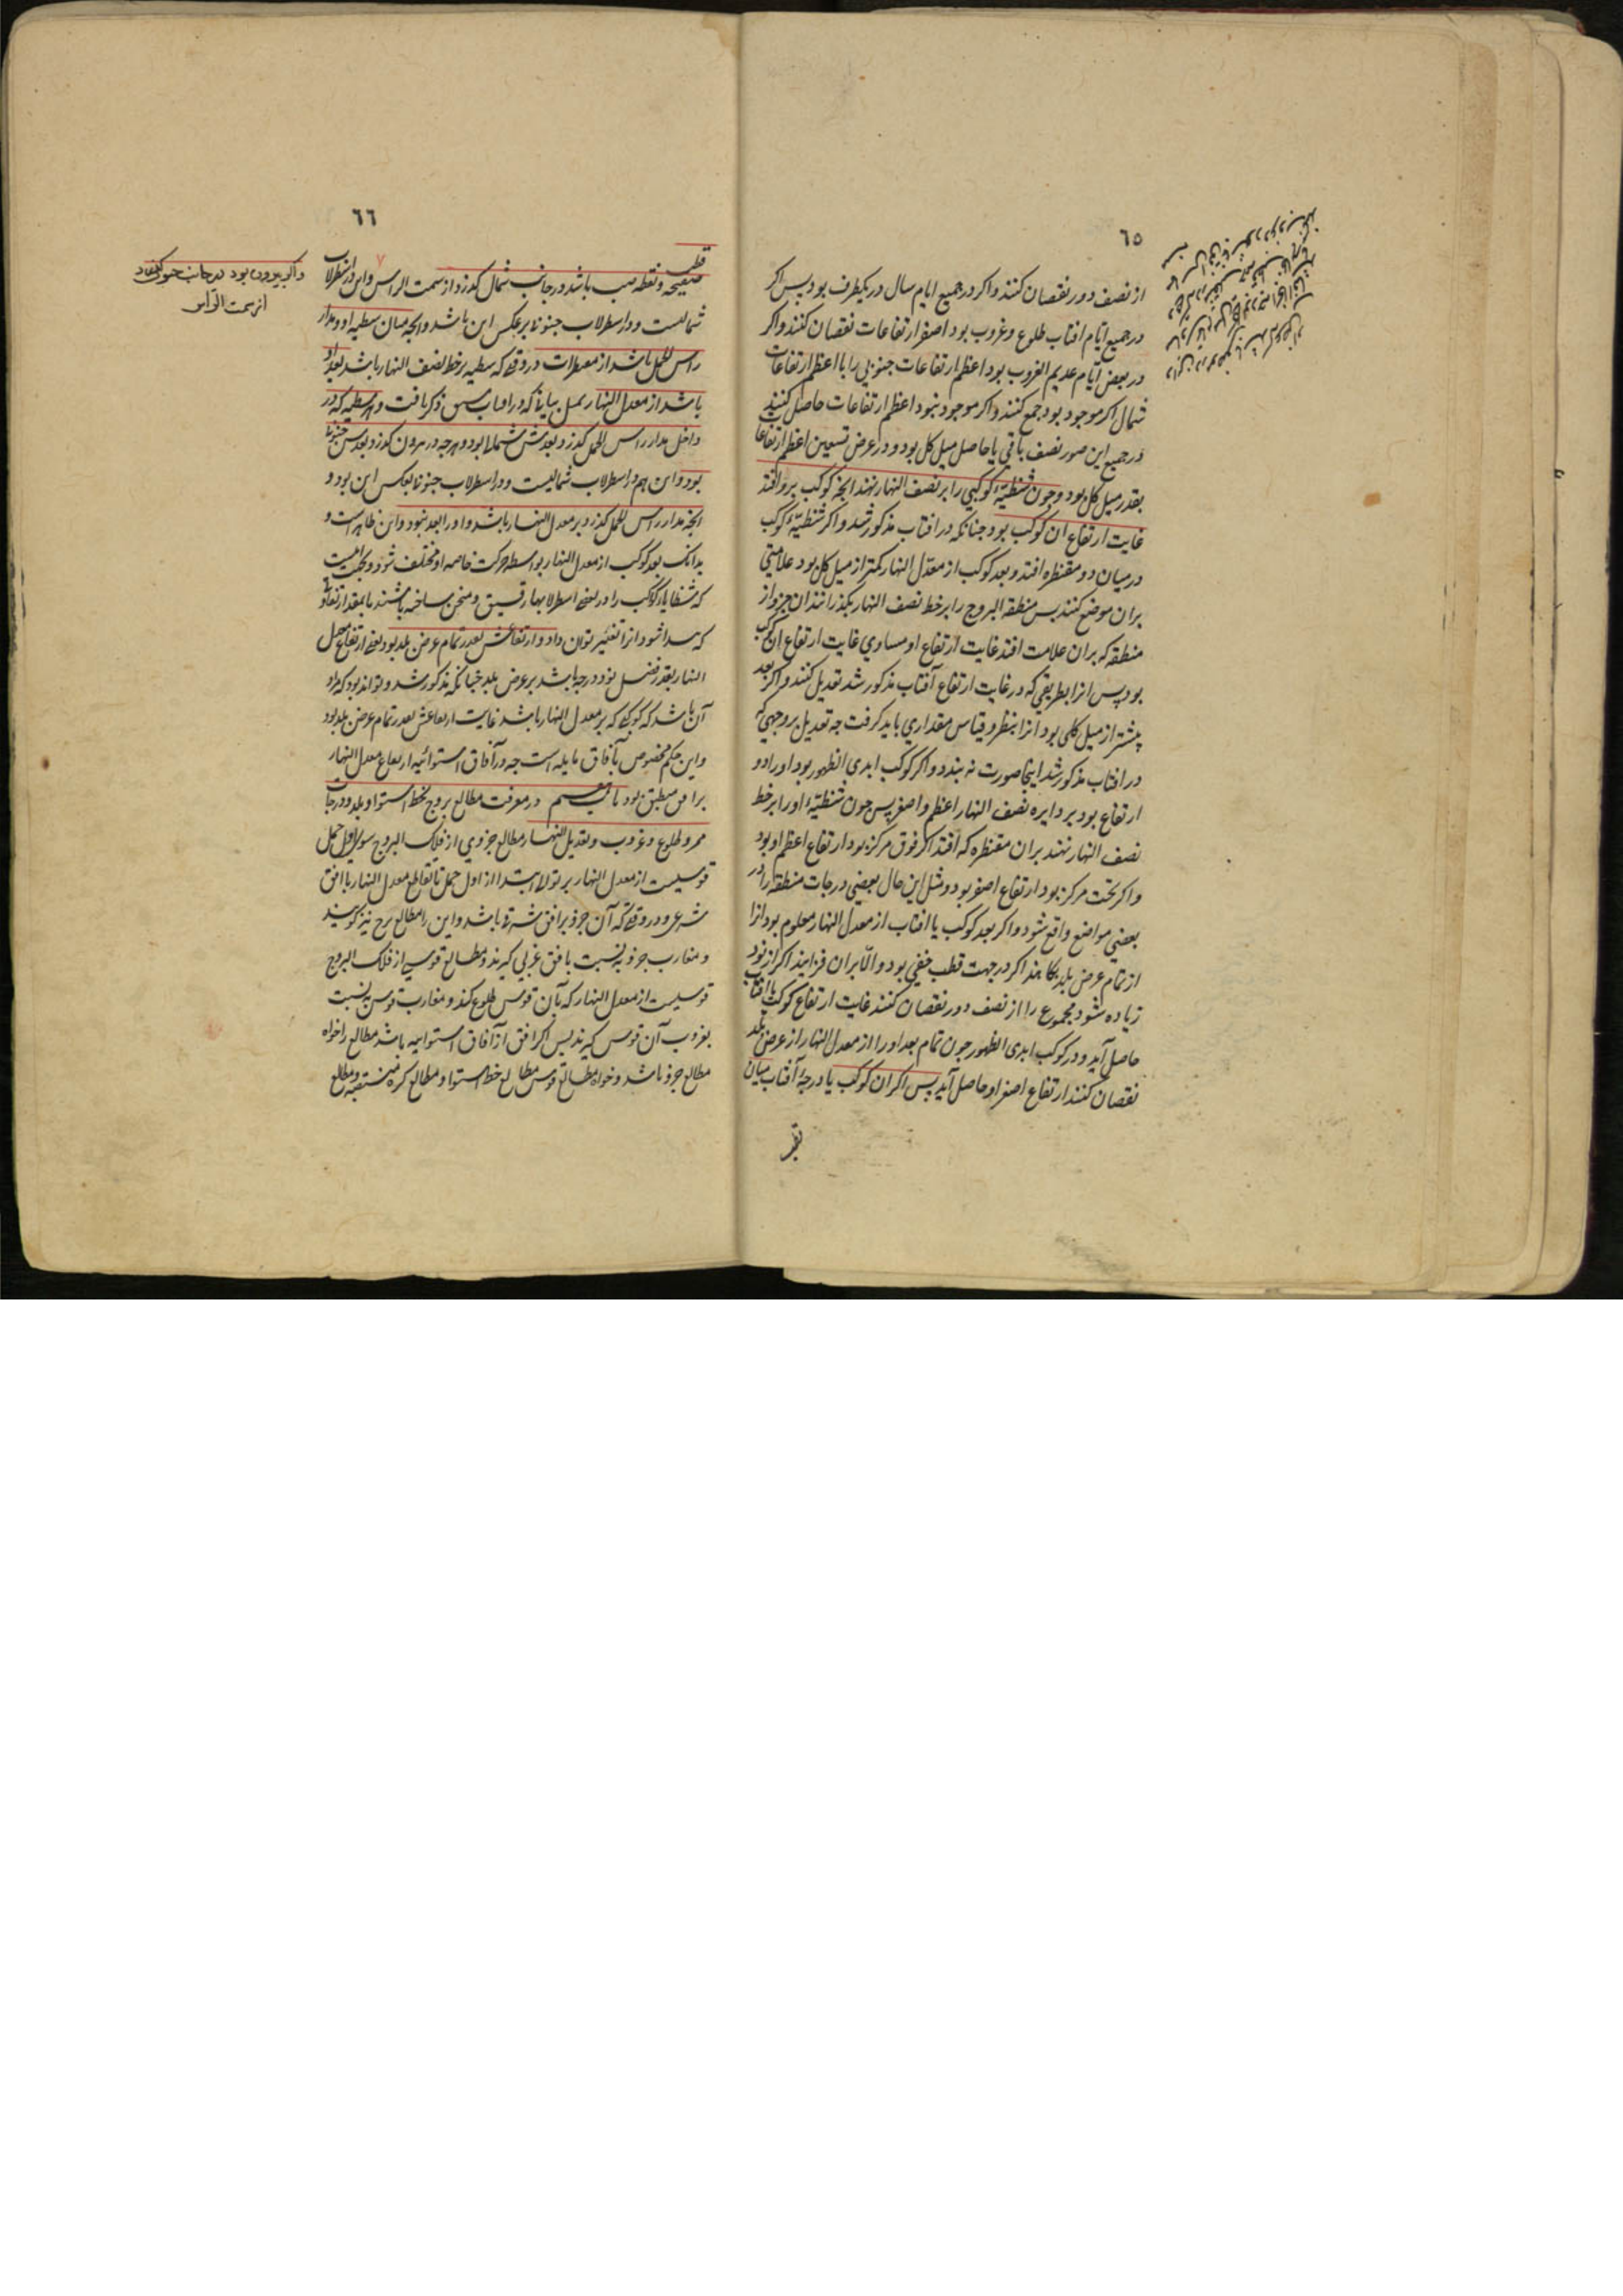 ٦٥
از نصف دور نقصان کنند و اکر در جمیع ایام سال در یکطرف بود پس اکر
در جمیع ایام افتاب طلوع و غروب بود اصغر ارتفاعات نقصان کنند و اکر
در بعض ایام عدیم الغروب بود اعظم ارتفاعات جنوبی را با اعظم ارتفاعات
شمال اکر موجود بود جمع کنند و اکر موجود نبود اعظم ارتفاعات حاصل کنند
در جمیع این صور نصف باقی یا حاصل میل کل بود و در عرض تسعین اعظم ارتفاعات
بقدر میل کل بود و جون شظیّهٔ کوکبی را بر نصف النهار نهند انجه کوکب برو افتد
غایت ارتفاع ان کوکب بود جنانکه در افتاب مذکور شد و اکر شظیّهٔ کوکب
در میان دو مقنطره افتد و بعد کوکب از معدل النهار کمتر از میل کل بود علامتی
بران موضع کنند بس منطقه البروج را بر خط نصف النهار بکذرانند ان جزو از
منطقه که بران علامت افتد غایت ارتفاع او مساوی غایت ارتفاع ان کوکب
بود پس انرا بطریقی که در غایت ارتفاع آفتاب مذکور شد تعدیل کنند و اکر بعد
بیشتر از میل کلی بود انرا بنظر و قیاس مقداری باید کرفت جه تعدیل بر وجهی که
در افتاب مذکور شد اینجا صورت نه بندد و اکر کوکب ابدی الظهور بود او را دو
ارتفاع بود بر دایره نصف النهار اعظم و اصغر پس جون شظیّهٔ او را بر خط
نصف النهار نهند بران مقنطره که افتد اکر فوق مرکز بود ارتفاع اعظم او بود
و اکر تحت مرکز بود ارتفاع اصغر بود و مثل این حال بعضی درجات منطقه را در
بعضی مواضع واقع شود و اکر بعد کوکب یا افتاب از معدل النهار معلوم بود انرا
از تمام عرض بلد بکاهند اکر در جهت قطب خفی بود و الّا بران فزایند اکر از نود
زیاده شود مجموع را از نصف دور نقصان کنند غایت ارتفاع کوکب یا افتاب
حاصل آید و در کوکب ابدی الظهور جون تمام بعد او را از معدل النهار از عرض بلد
نقصان کنند ارتفاع اصغر او حاصل آید پس اکر ان کوکب یا درجهٔ آفتاب میان
٦٦
قطب
صفیحه و نقطه باشد در جانب شمال کذرد از سمت الراس و این در اسطرلاب
شمالیست و در اسطرلاب جنوبی بر عکس این باشد و انجه میان شظیه او و مدار
راس الحمل باشد از مقنطرات در وقتی که شظیه بر خط نصف النهار باشد بعد او
باشد از معدل النهار که در افتاب ذکر یافت و هر شظیه که در
داخل مدار راس الحمل کذرد بعدش شمالی بود و هر جه در بیرون کذرد بعدش جنوبی
بود و این هم در اسطرلاب شمالیست و در اسطرلاب جنوبی بعکس این بود و
انجه مدار راس الحمل کذرد بر معدل النهار باشد و او را بعد نبود و این ظاهر است و
بدانک بعد کوکب از معدل النهار بواسطه حرکت خاصه او مختلف شود
که شظایا کوکب را در بعضی اسطرلابها رقیق و منحنی ساخته باشند تا بمقدار تفاوتی
که پیدا شود انرا تغییر توان داد و ارتفاعش بقدر تمام عرض بلد بود یعنی ارتفاع معدل
النهار بقدر فضل نود درجه باشد بر عرض بلد جنانکه مذکور شد و تواند بود که مراد
آن باشد که کوکبی که بر معدل النهار باشد غایت ارتفاعش بقدر تمام عرض بلد بود
و این حکم مخصوص بآفاق مایله است جه در آفاق استوائیه ارتفاع معدل النهار
در معرفت مطالع بروج بخط استوا و بلد و درجات
ممر و طلوع و غروب و تعدیل النهار مطالع جزوی از فلک البروج سوی اول حمل
قوسیست از معدل النهار بر توالی ابتدا از اول حمل تا تقاطع معدل النهار با افق
شرقی در وقتی که آن جزو بر افق شرقی باشد و این را مطالع نیز کویند
و مغارب جزو به نسبت با افق غربی کیرند و مطالع قوسی از فلک البروج
قوسیست از معدل النهار که با آن قوس طلوع کند و مغارب قوس نسبت
بغروب آن قوس کیرند پس اکر افق از آفاق استوائیه باشد مطالع را خواه
مطالع جزو باشد و خواه مطالع قوس مطالع خط استوا و مطالع کره مستقیمه و مطالع
و اکر بیرون بود در جانب جنوب
از سمت الراس